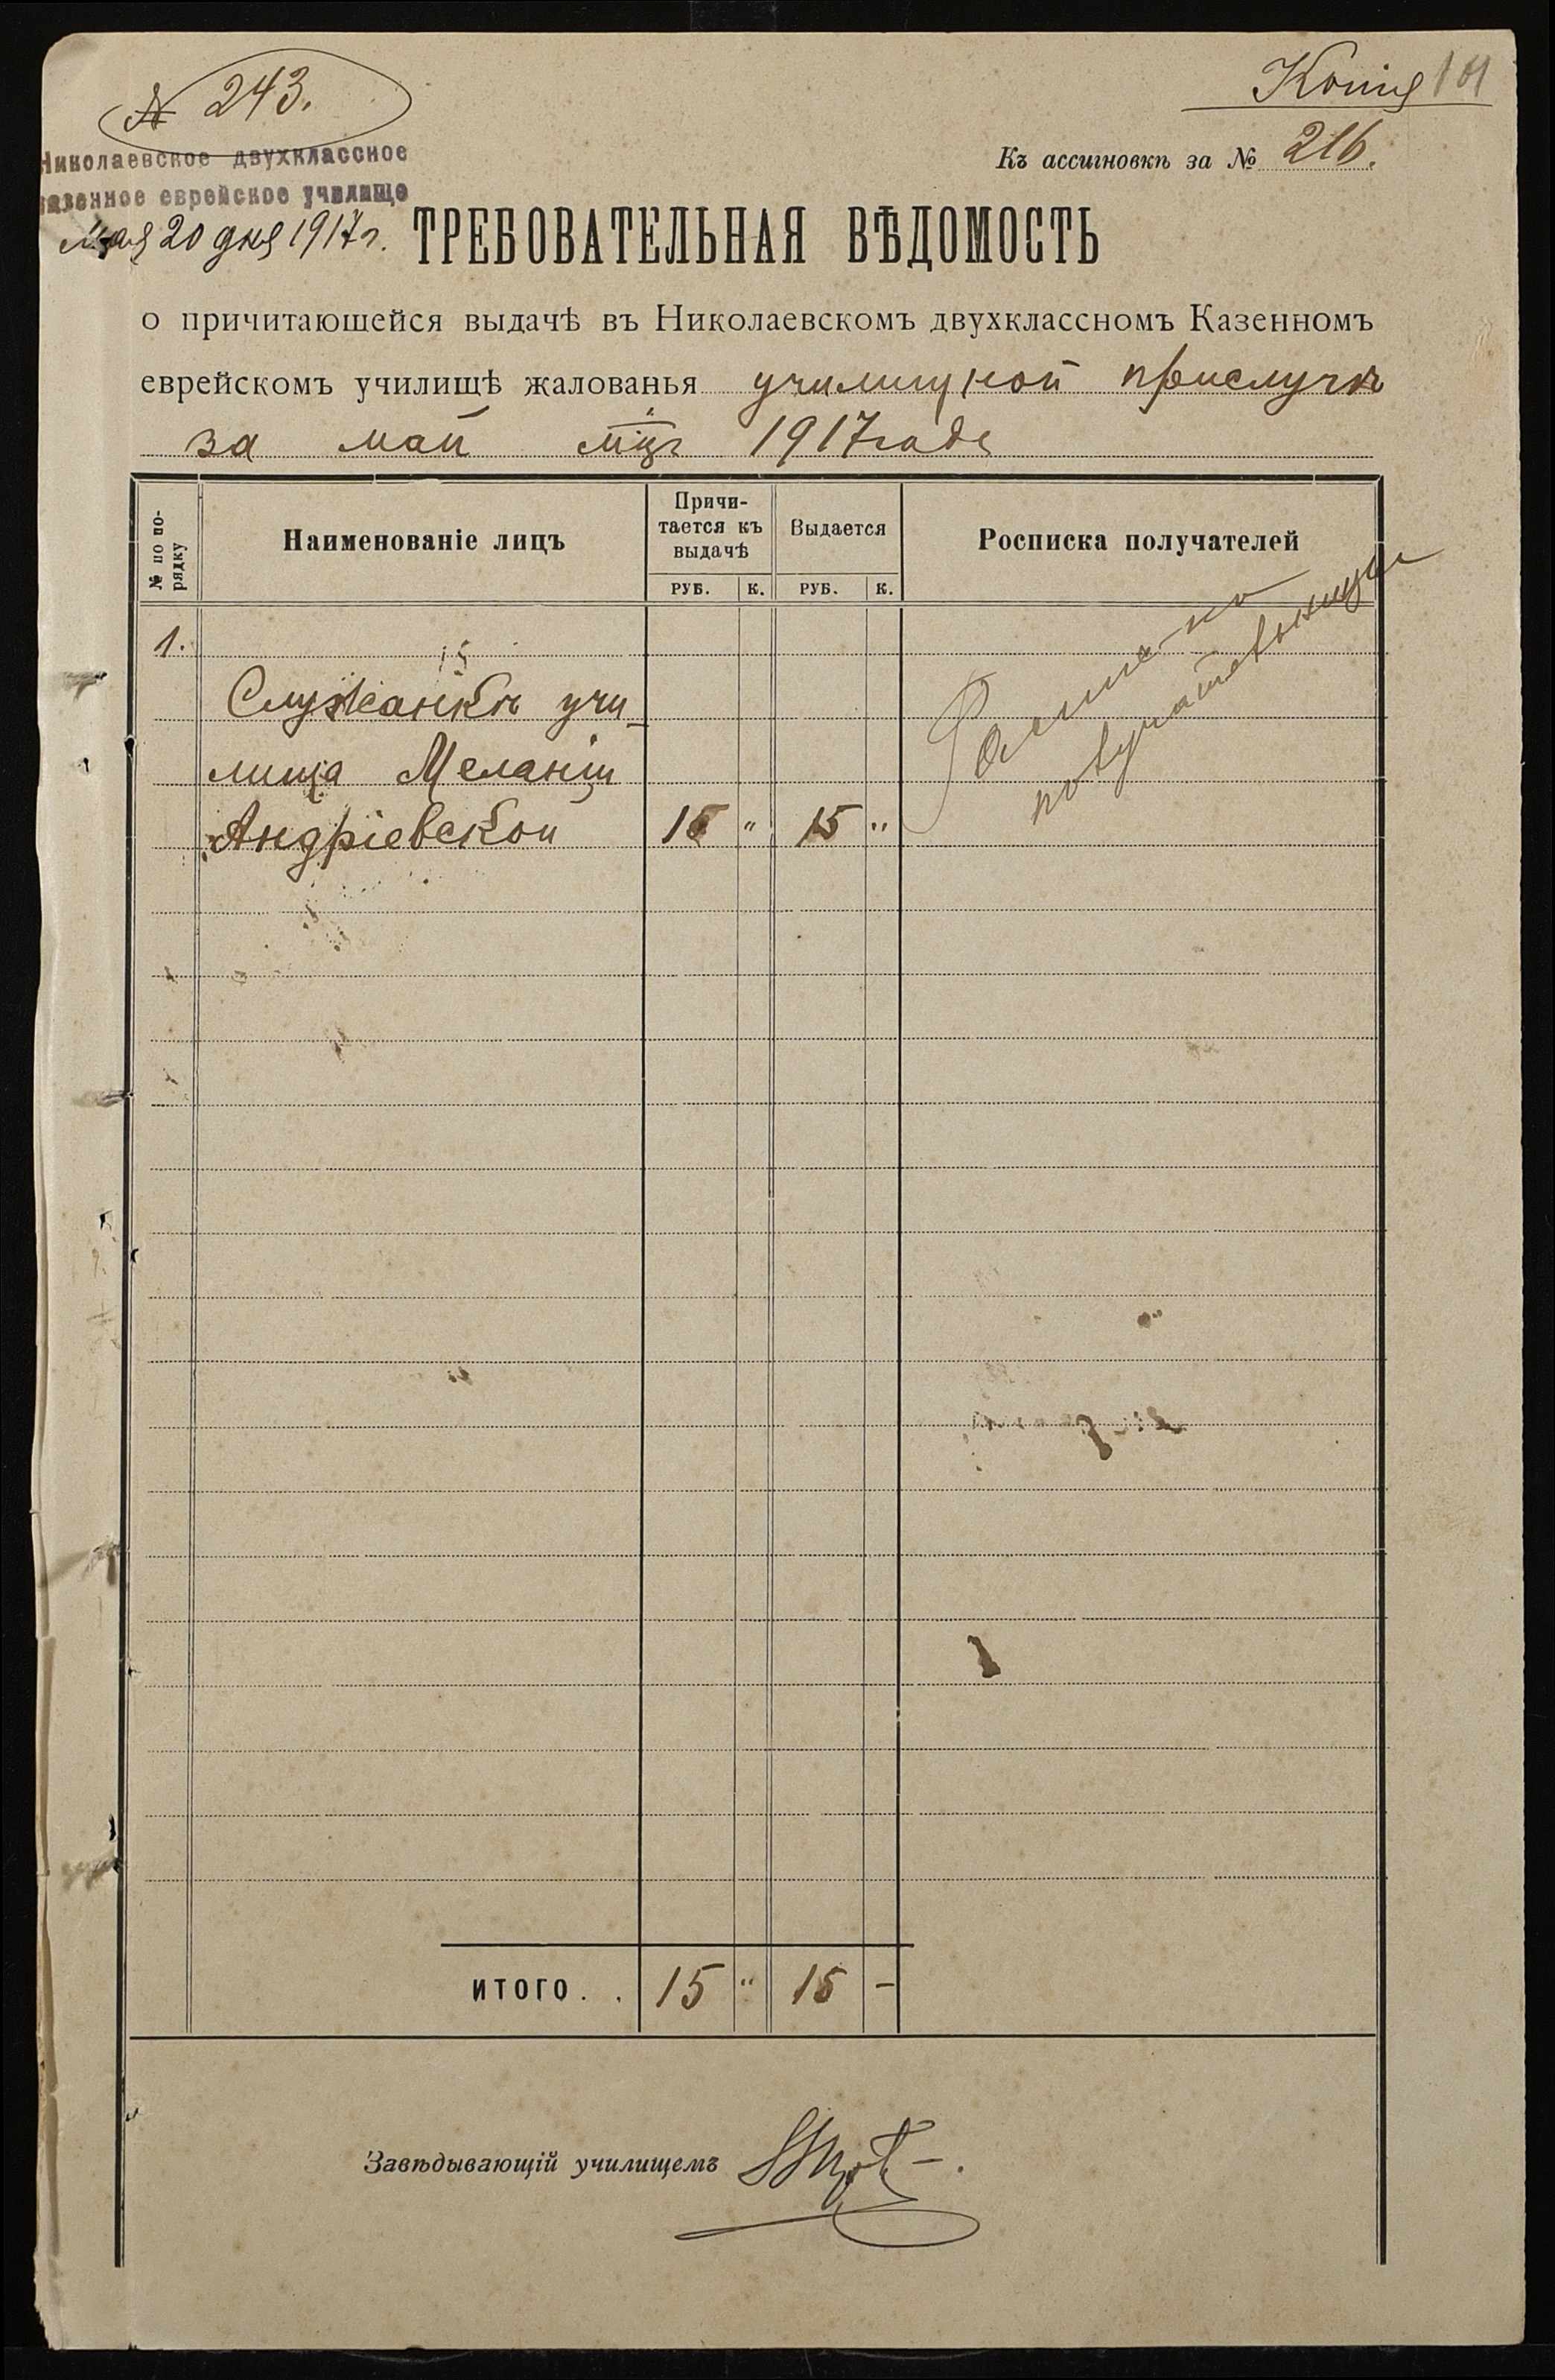 № 243.
Копія 101
Николаевское двухклассное
казенное еврейское училище
Мая 20 дня 1917 г.
Къ ассигновкѣ за № 216.
ТРЕБОВАТЕЛЬНАЯ ВѢДОМОСТЬ
о причитающейся выдачѣ въ Николаевскомъ двухклассномъ Казенномъ
еврейскомъ училищѣ жалованья училищной прислугѣ
за май мцъ 1917 года
№ по по-
рядку
Наименованіе лицъ
Причи-
тается къ
выдачѣ
Выдается
Росписка получателей
РУБ. К. РУБ. К.
1.
Служанкѣ учи-
лища Меланіи
Андріевской 15 " 15 "
получательницы
ИТОГО . . 15 " 15 -
Завѣдывающій училищемъ